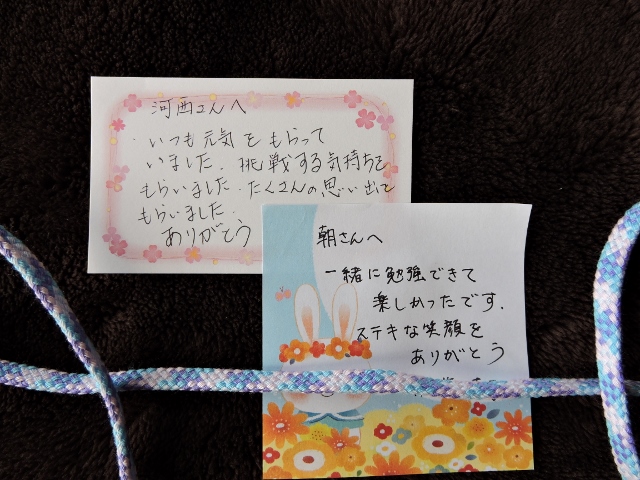 河西さんへ
いつも元気をもらって
いました。挑戦する気持ちを
もらいました。たくさんの思い出
もらいました。
ありがとう
朝さんへ
一緒に勉強できて
楽しかったです。
ステキな笑顔を
ありがとう